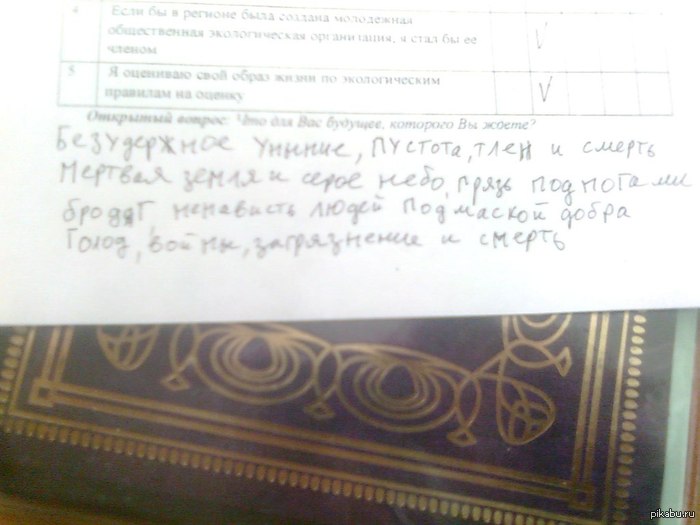 4 Если бы в регионе была создана молодежная
общественная экологическая организация, я стал бы ее
членом
5 Я оцениваю свой образ жизни по экологическим
правилам на оценку
Открытый вопрос: Что для Вас будущее, которого Вы ждете?
Безудержное уныние, пустота, тлен и смерть
Мертвая земля и серое небо, грязь под ногами
бродяг, ненависть людей под маской добра
Голод, войны, загрязнение и смерть
pikabu.ru